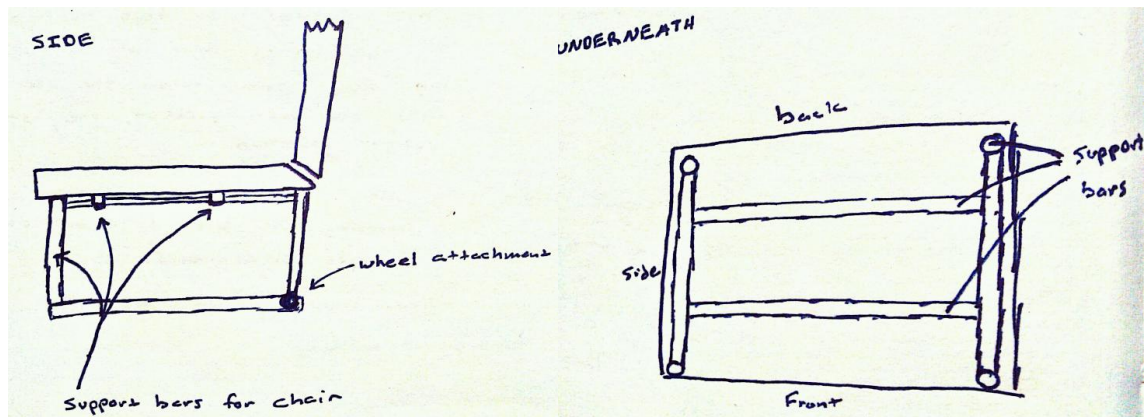 SIDE
wheel attachment
Support bars for chair
UNDERNEATH
back
Support
bars
Side
Front